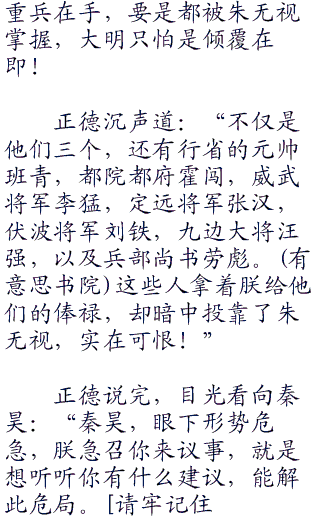 重兵在手，要是都被朱无视
掌握，大明只怕是倾覆在
即！
正德沉声道：“不仅是
他们三个，还有行省的元帅
班青，都院都府霍闯，威武
将军李猛，定远将军张汉，
伏波将军刘铁，九边大将汪
强，以及兵部尚书劳彪。(有
意思书院)这些人拿着朕给他
们的俸禄，却暗中投靠了朱
无视，实在可恨！”
正德说完，目光看向秦
昊：“秦昊，眼下形势危
急，朕急召你来议事，就是
想听听你有什么建议，能解
此危局。[请牢记住